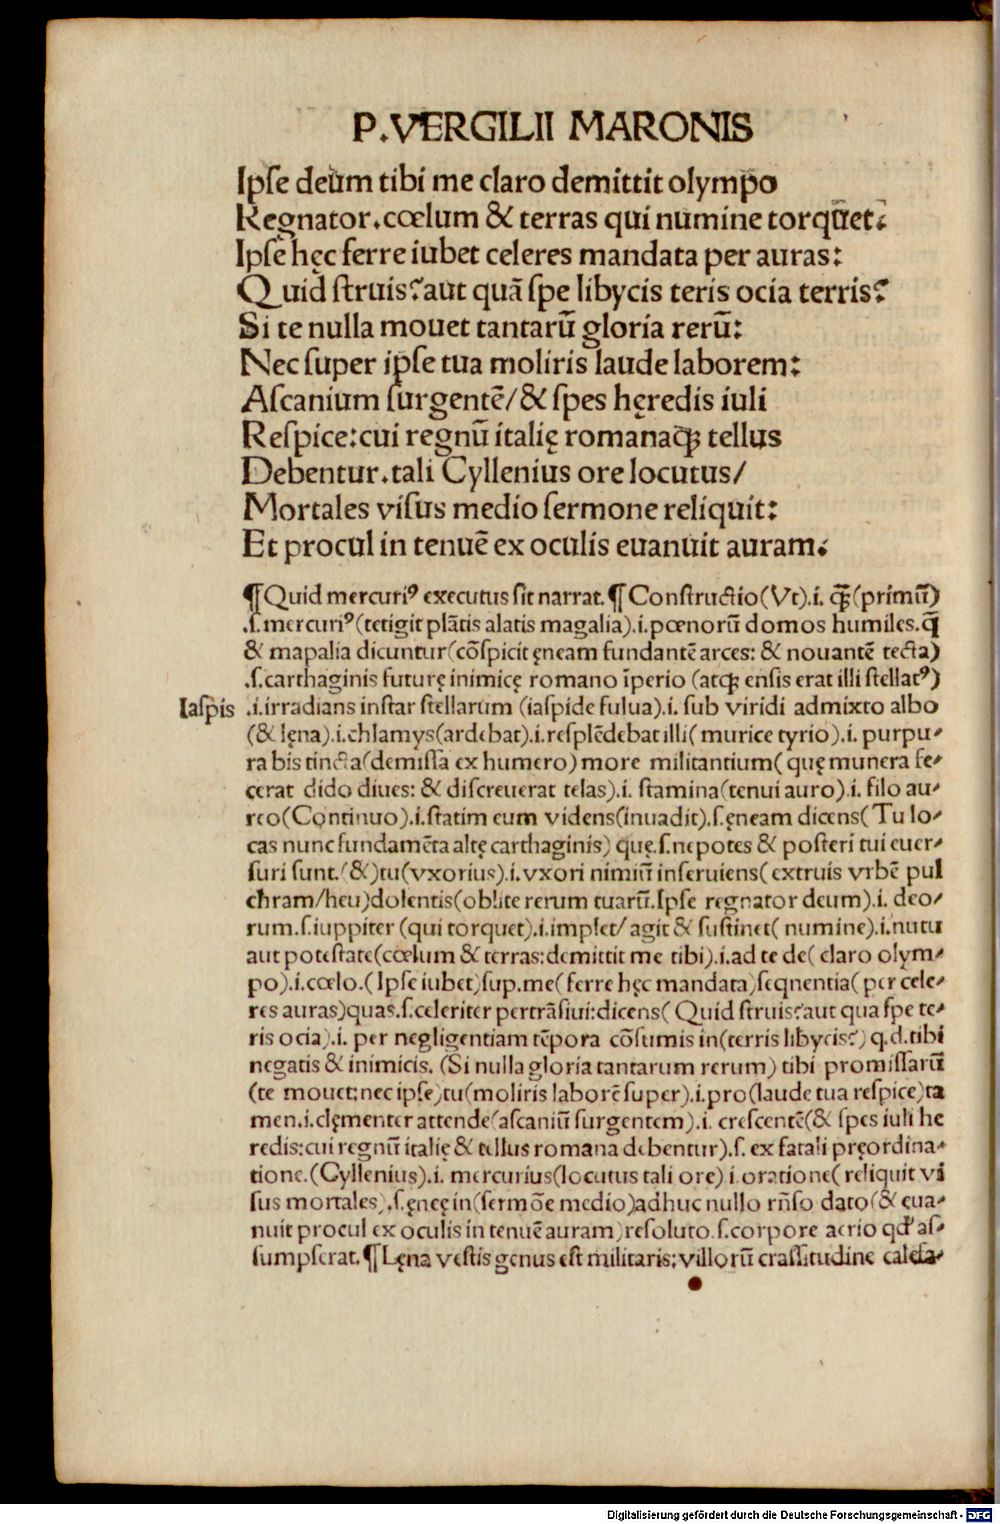 P.VERGILII MARONIS
Ipse deũm tibi me claro demittit olympo
Regnator.cœlum & terras qui numine torqũet:
Ipse hęc ferre iubet celeres mandata per auras:
Quid struis?aut quã spe libycis teris ocia terris?
Si te nulla mouet tantarũ gloria rerũ:
Nec super ipse tua moliris laude laborem:
Ascanium surgentẽ/& spes hęredis iuli
Respice:cui regnũ italię romanaqꝫ tellus
Debentur.tali Cyllenius ore locutus/
Mortales visus medio sermone reliquit:
Et procul in tenuẽ ex oculis euanuit auram.
¶Quid mercuriꝰ executus sit narrat.¶Constructio(Vt).i. qꝫ̃(primũ)
.s.mercuriꝰ(tetigit plãtis alatis magalia).i.pœnorũ domos humiles.q̃
& mapalia dicuntur(cõspicit ęneam fundantẽ arces: & nouantẽ tecta)
.s.carthaginis futurę inimicę romano ĩperio (atqꝫ ensis erat illi stellatꝰ)
Iaspis .i.irradians instar stellarum (iaspide fulua).i. sub viridi admixto albo
(& lęna).i.chlamys(ardebat).i.resplẽdebat illi( murice tyrio).i. purpu-
ra bis tincta(demissa ex humero) more militantium( quę munera fe-
cerat dido diues: & discreuerat telas).i. stamina(tenui auro).i. filo au-
reo(Continuo).i.statim eum videns(inuadit).s.ęneam dicens( Tu lo-
cas nunc fundamẽta altę carthaginis) quę.s.nepotes & posteri tui euer-
suri sunt.(&)tu(vxorius).i.vxori nimiũ inseruiens( extruis vrbẽ pul
chram/heu)dolentis(oblite rerum tuarũ.Ipse regnator deum).i. deo-
rum.s.iuppiter (qui torquet).i.implet/ agit & sustinet( numine).i.nutu
aut potestate(cœlum & terras:demittit me tibi).i.ad te de( claro olym-
po).i.cœlo.(Ipse iubet)sup.me( ferre hęc mandata)seqnentia( per cele-
res auras)quas.s.celeriter pertrãsiui:dicens( Quid struis?aut qua spe te-
ris ocia).i. per negligentiam tẽpora cõsumis in(terris libycis?) q.d.tibi
negatis & inimicis. (Si nulla gloria tantarum rerum) tibi promissarũ
(te mouet:nec ipse)tu(moliris laborẽ super).i.pro(laude tua respice)ta
men.i.clęmenter attende(ascaniũ surgentem).i. crescentẽ(& spes iuli he
redis:cui regnũ italię & tellus romana debentur).s. ex fatali pręordina-
tione.(Cyllenius).i. mercurius(locutus tali ore).i.oratione( reliquit vi
sus mortales).s.ęnęę in(sermõe medio)adhuc nullo rñso dato(& eua-
nuit procul ex oculis in tenuẽ auram)resoluto.s.corpore aerio qđ as-
sumpserat.¶Lęna vestis genus est militaris:villorũ crassitudine calefa-
Digitalisierung gefördert durch die Deutsche Forschungsgemeinschaft - DFG